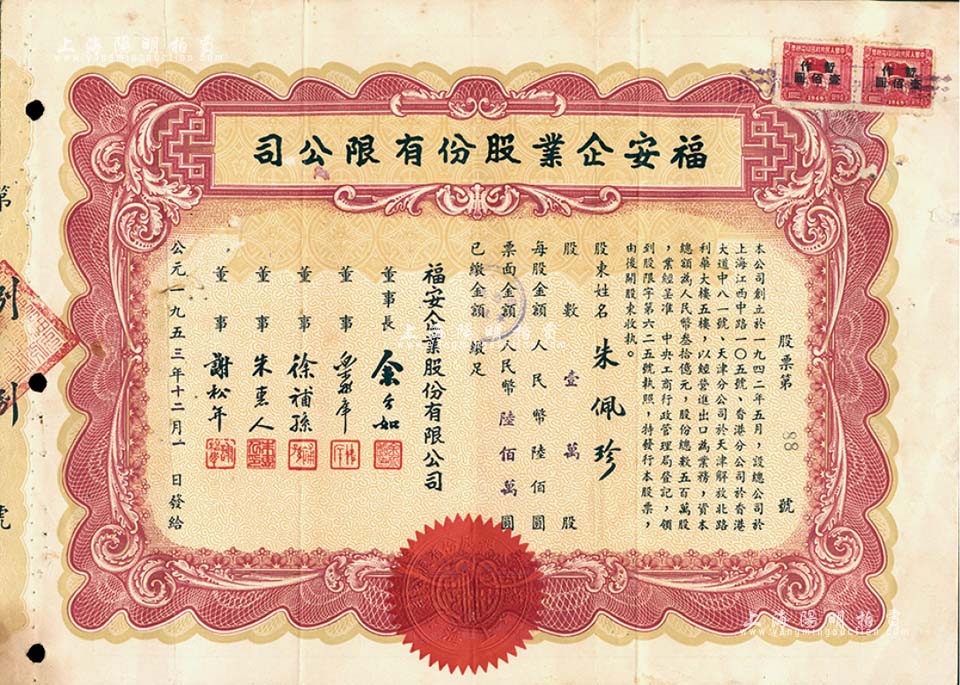 福安企業股份有限公司
股票第 88 號
本公司創立於一九四二年五月，設總公司於
上海江西中路一〇五號、香港分公司於香港
大道中八一號、天津分公司於天津解放北路
利華大樓五樓，以經營進出口為業務，資本
總額為人民幣叁拾億元，股份總數五百萬股
，業經呈准 中央工商行政管理局登記，領
到股限字第六二五號執照，特發行本股票，
由後開股東收執。
股東姓名 朱佩珍
股數 壹萬 股
每股金額 人民幣陸佰圓
票面金額 人民幣陸佰萬圓
已繳金額 繳足
福安企業股份有限公司
董事長
董事
董事 徐補孫
董事 朱惠人
董事 謝松年
公元一九五三年十二月一日發給
第
號
暫作
壹佰圓
1949
暫作
壹佰圓
1949
上海陽明拍賣
上海陽明拍賣
www.yangmingauction.com
上海陽明拍賣
www.yangmingauction.com